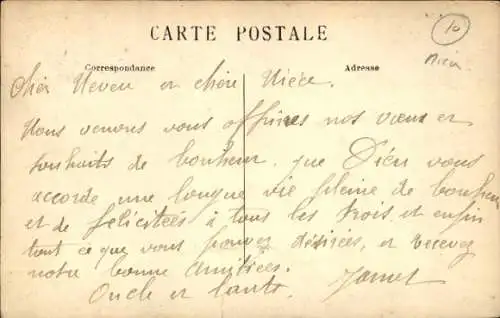 10
CARTE POSTALE
Correspondance
Adresse
Cher Neveu et chère Nièce.
Nous venons vous offrires nos vœux et
souhaits de bonheur. que Dieu vous
accorde une longue vie pleine de bonheur
et de félicitées à tous les trois et enfin
tout ce que vous pouvez désirées, et recevez
notre bonne amitiées.
Oncle et tante.